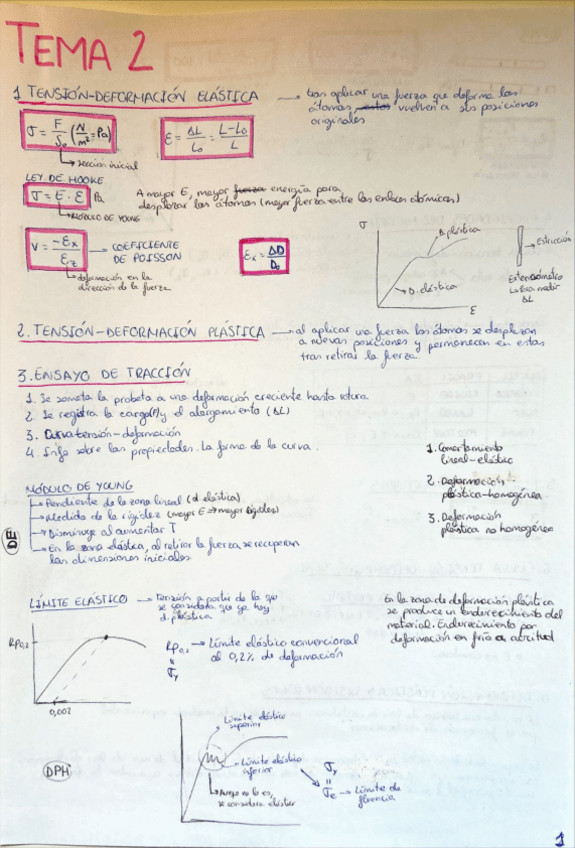 TEMA 2
1 TENSIÓN-DEFORMACIÓN ELÁSTICA → tras aplicar una fuerza que deforma los
átomos vuelven a sus posiciones
originales
σ = F/S₀ (N/m² = Pa)
ε = ΔL/L₀ = L-L₀/L
→ sección inicial
LEY DE HOOKE
σ = E · ε Pa
→ MÓDULO DE YOUNG
A mayor E, mayor fuerza energía para
desplazar los átomos (mayor fuerza entre los enlaces atómicos)
ν = -εx/εz → COEFICIENTE
DE POISSON
→ deformación en la
dirección de la fuerza
εx = ΔD/D₀
σ
D. plástica
D. elástica
ε
Estricción
Extensómetro
↳ para medir
ΔL
2. TENSIÓN-DEFORMACIÓN PLÁSTICA → al aplicar una fuerza los átomos se desplazan
a nuevas posiciones y permanecen en estas
tras retirar la fuerza.
3. ENSAYO DE TRACCIÓN
1. Se someta la probeta a una deformación creciente hasta rotura
2. Se registra la carga(F) y el alargamiento (ΔL)
3. Curva tensión-deformación
4. Info sobre las propiedades. La forma de la curva.
MÓDULO DE YOUNG
→ Pendiente de la zona lineal (d elástica)
→ Medida de la rigidez (mayor E → mayor rigidez)
→ Disminuye al aumentar T
→ En la zona elástica, al retirar la fuerza se recuperan
las dimensiones iniciales
DE
1. Comortamiento
lineal-elástico
2. Deformación
plástica-homogénea
3. Deformación
plástica no homogénea
LÍMITE ELÁSTICO → Tensión a partir de la que
se considera que ya hay
d. plástica
Rp0,2
0,002
Rp0,2 → Límite elástico convencional
al 0,2% de deformación
=
σy
En la zona de deformación plástica
se produce un endurecimiento del
material. Endurecimiento por
deformación en frío o acritud
DPH
Límite elástico
superior
Límite elástico
inferior
↳ Aunque no lo es,
se considera elástico
σy
=
σe → Límite de
fluencia
1